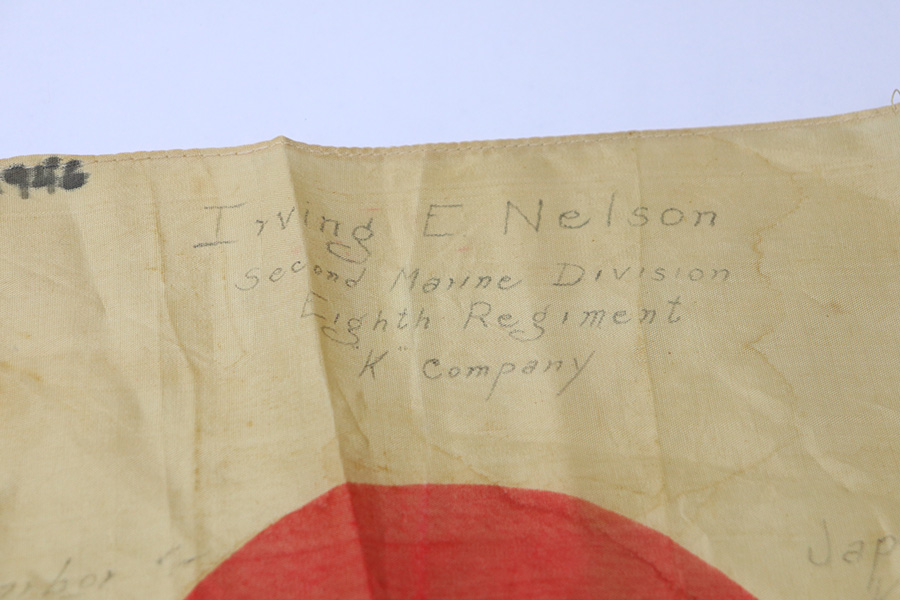 1946
Irving E Nelson
Second Marine Division
Eighth Regiment
"K" Company